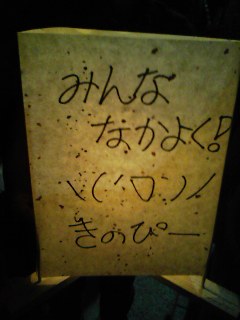 みんな
なかよく!
\('ロ')/
きのぴー